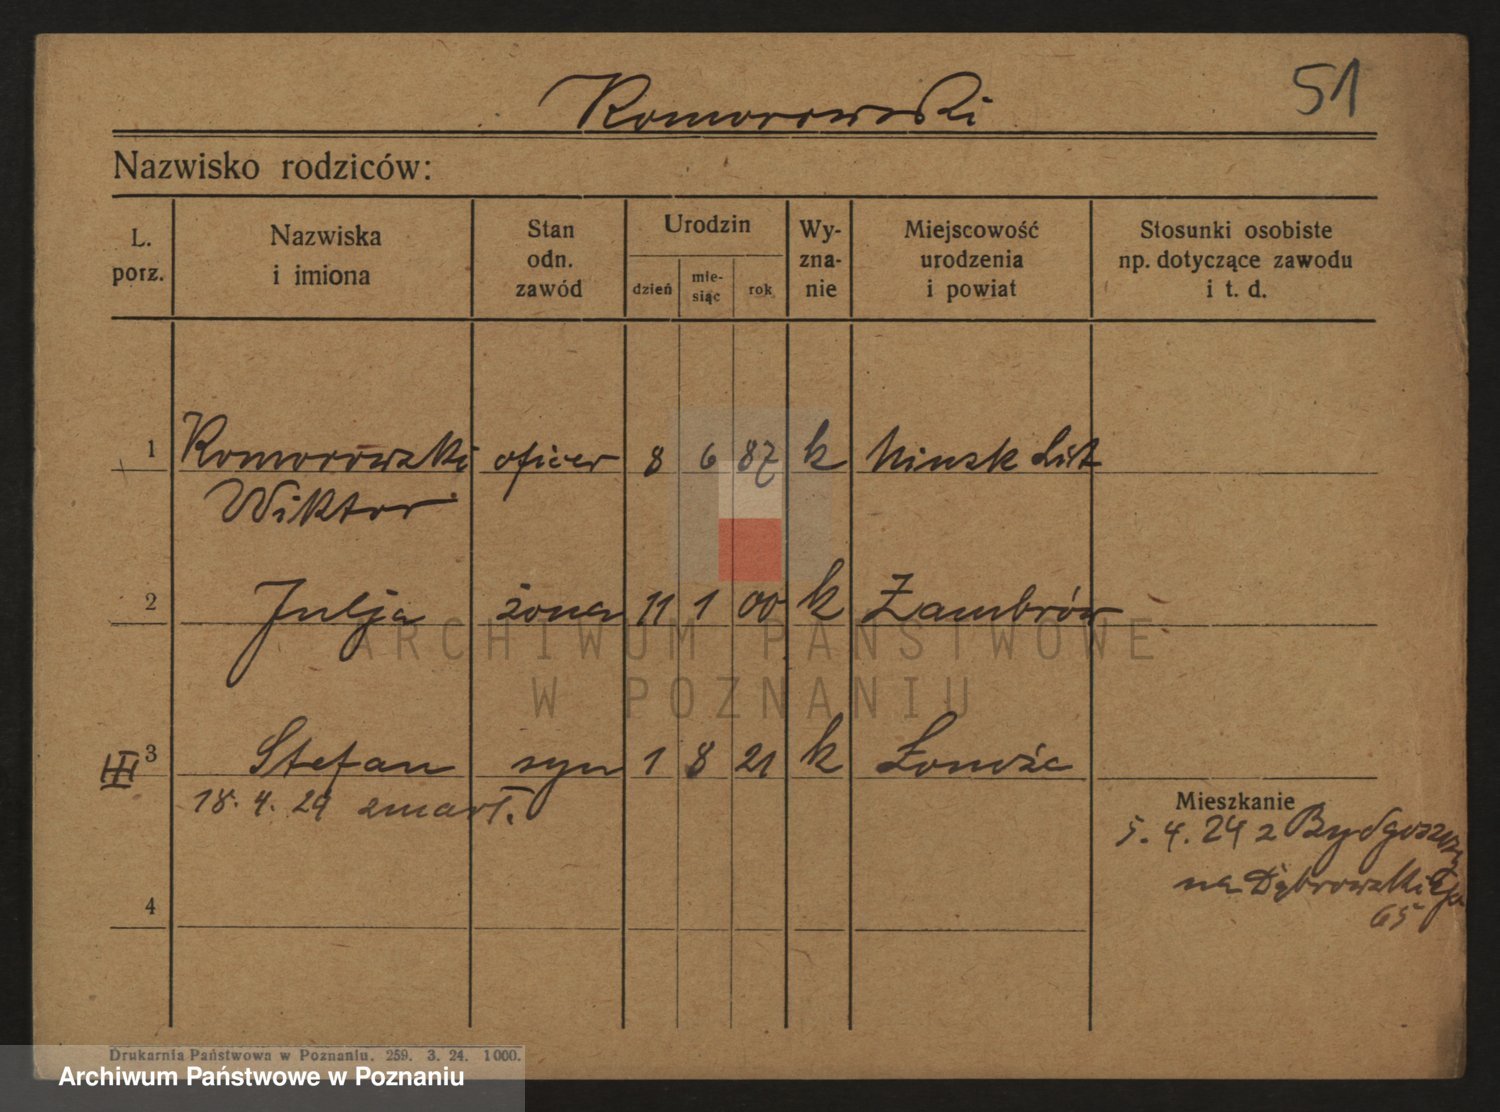 Komorowski
51
Nazwisko rodziców:
L. porz.
Nazwiska i imiona
Stan odn. zawód
Urodzin
dzień
mie-siąc
rok
Wy-zna-nie
Miejscowość urodzenia i powiat
Stosunki osobiste np. dotyczące zawodu i t. d.
1 Komorowski oficer 8 6 87 k Minsk Lit
Wiktor
2 Julja żona 11 1 00 k Zambrów
ARCHIWUM PAŃSTWOWE
W POZNANIU
III 3 Stefan syn 1 8 21 k Łomża
18. 4. 29 zmarł.
Mieszkanie
5. 4. 24 z Bydgoszczy
na Dąbrowskiego
65
4
Drukarnia Państwowa w Poznaniu. 259. 3. 24. 1000.
Archiwum Państwowe w Poznaniu